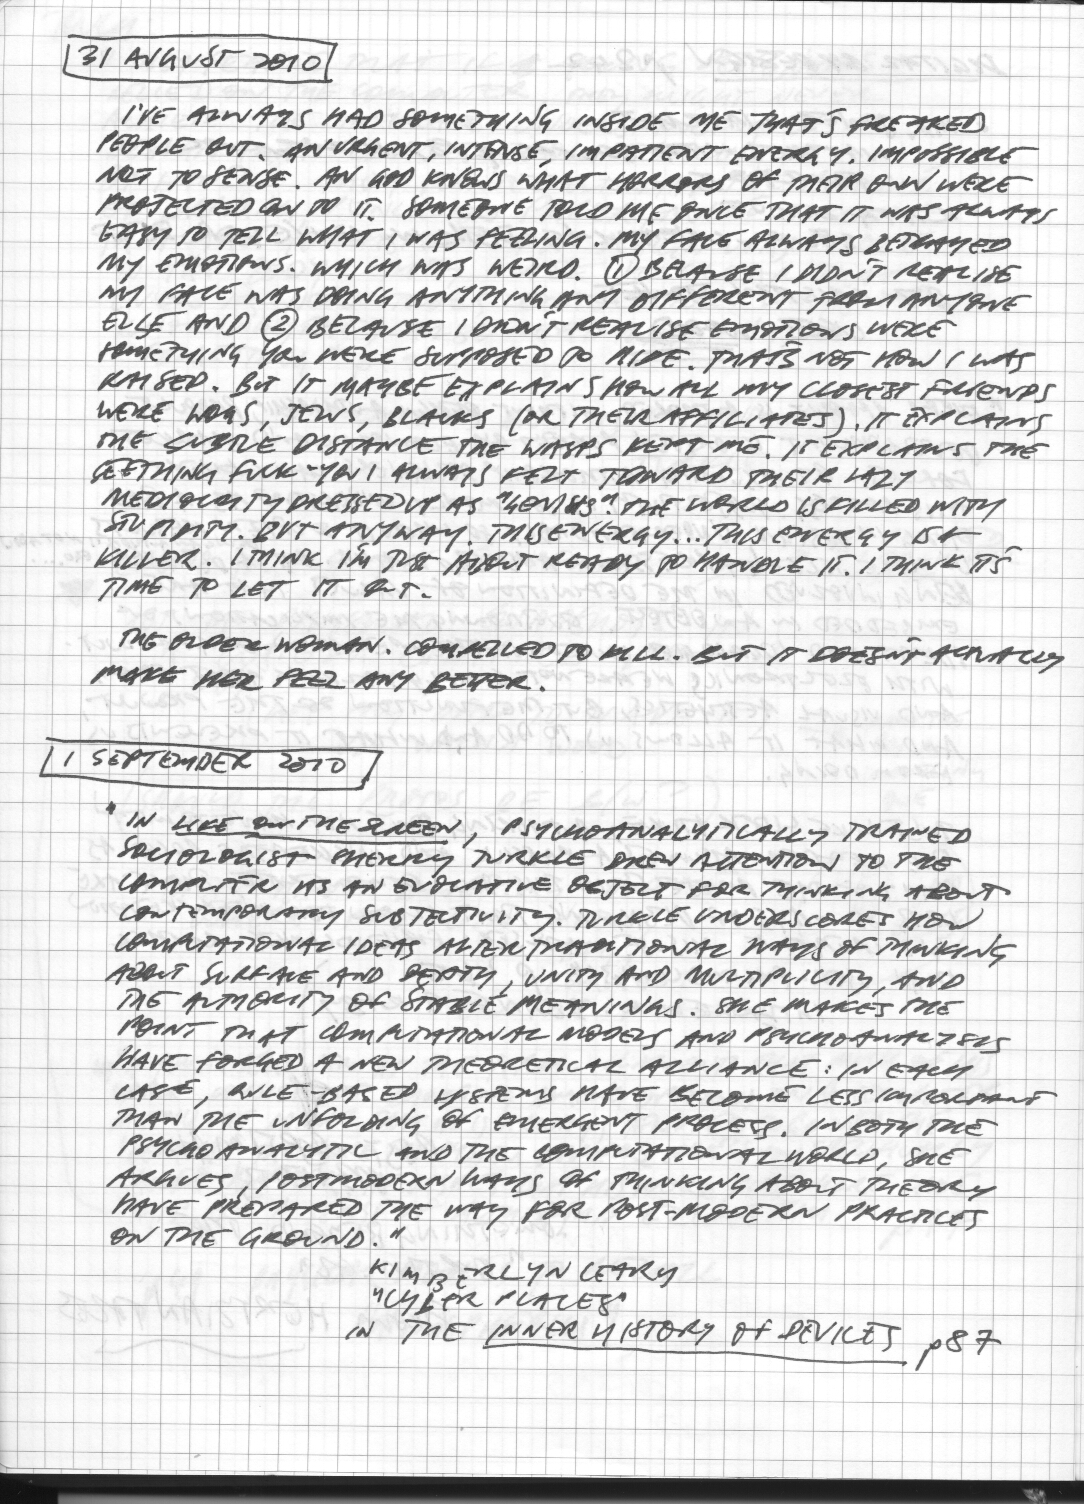 31 AUGUST 2010
I'VE ALWAYS HAD SOMETHING INSIDE ME THAT'S FREAKED
PEOPLE OUT. AN URGENT, INTENSE, IMPATIENT ENERGY. IMPOSSIBLE
NOT TO SENSE. AN GOD KNOWS WHAT HORRORS OF THEIR OWN WERE
PROJECTED ON TO IT. SOMEONE TOLD ME ONCE THAT IT WAS ALWAYS
EASY TO TELL WHAT I WAS FEELING. MY FACE ALWAYS BETRAYED
MY EMOTIONS. WHICH WAS WEIRD. ① BECAUSE I DIDN'T REALISE
MY FACE WAS DOING ANYTHING ANY DIFFERENT FROM ANYONE
ELSE AND ② BECAUSE I DIDN'T REALISE EMOTIONS WERE
SOMETHING YOU WERE SUPPOSED TO HIDE. THAT'S NOT HOW I WAS
RAISED. BUT IT MAYBE EXPLAINS HOW ALL MY CLOSEST FRIENDS
WERE WOGS, JEWS, BLACKS (OR THEIR AFFILIATES). IT EXPLAINS
THE SUBTLE DISTANCE THE WASPS KEPT ME. IT EXPLAINS THE
SEETHING FUCK-YOU I ALWAYS FELT TOWARD THEIR LAZY
MEDIOCRITY DRESSED UP AS "GENIUS". THE WORLD IS FILLED WITH
STUPIDITY. BUT ANYWAY. THIS ENERGY... THIS ENERGY IS A
KILLER. I THINK I'M JUST ABOUT READY TO HANDLE IT. I THINK IT'S
TIME TO LET IT OUT.
THE OLDER WOMAN. COMPELLED TO KILL. BUT IT DOESN'T ACTUALLY
MAKE HER FEEL ANY BETTER.
1 SEPTEMBER 2010
"IN LIFE ON THE SCREEN, PSYCHOANALYTICALLY TRAINED
SOCIOLOGIST SHERRY TURKLE DREW ATTENTION TO THE
COMPUTER AS AN EVOCATIVE OBJECT FOR THINKING ABOUT
CONTEMPORARY SUBJECTIVITY. TURKLE UNDERSCORES HOW
COMPUTATIONAL IDEAS ALTER TRADITIONAL WAYS OF THINKING
ABOUT SURFACE AND DEPTH, UNITY AND MULTIPLICITY, AND
THE AUTHORITY OF STABLE MEANINGS. SHE MAKES THE
POINT THAT COMPUTATIONAL MODELS AND PSYCHOANALYSIS
HAVE FORGED A NEW THEORETICAL ALLIANCE: IN EACH
CASE, RULE-BASED SYSTEMS HAVE BECOME LESS IMPORTANT
THAN THE UNFOLDING OF EMERGENT PROCESS. IN BOTH THE
PSYCHOANALYTIC AND THE COMPUTATIONAL WORLD, SHE
ARGUES, POSTMODERN WAYS OF THINKING ABOUT THEORY
HAVE PREPARED THE WAY FOR POST-MODERN PRACTICES
ON THE GROUND."
KIMBERLYN LEARY
"CYBER PLACES"
IN THE INNER HISTORY OF DEVICES p87